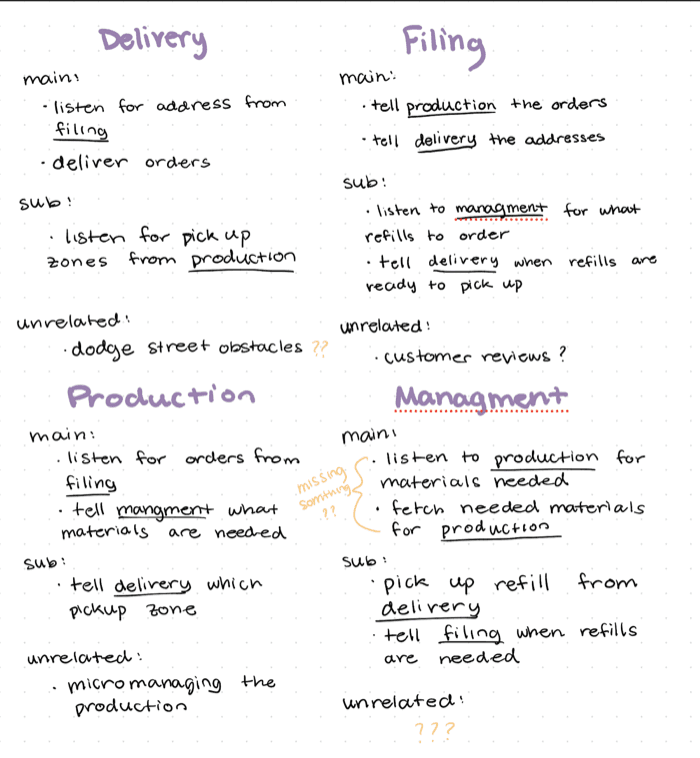 Delivery
main:
· listen for address from
filing
· deliver orders
sub:
· listen for pick up
zones from production
unrelated:
· dodge street obstacles ??
Filing
main:
· tell production the orders
· tell delivery the addresses
sub:
· listen to managment for what
refills to order
· tell delivery when refills are
ready to pick up
unrelated:
· customer reviews?
Production
main:
· listen for orders from
filing
· tell mangment what
materials are needed
sub:
· tell delivery which
pickup zone
unrelated:
· micromanaging the
production
Managment
main:
missing
somthing
??
· listen to production for
materials needed
· fetch needed materials
for production
sub:
· pick up refill from
delivery
· tell filing when refills
are needed
unrelated:
???